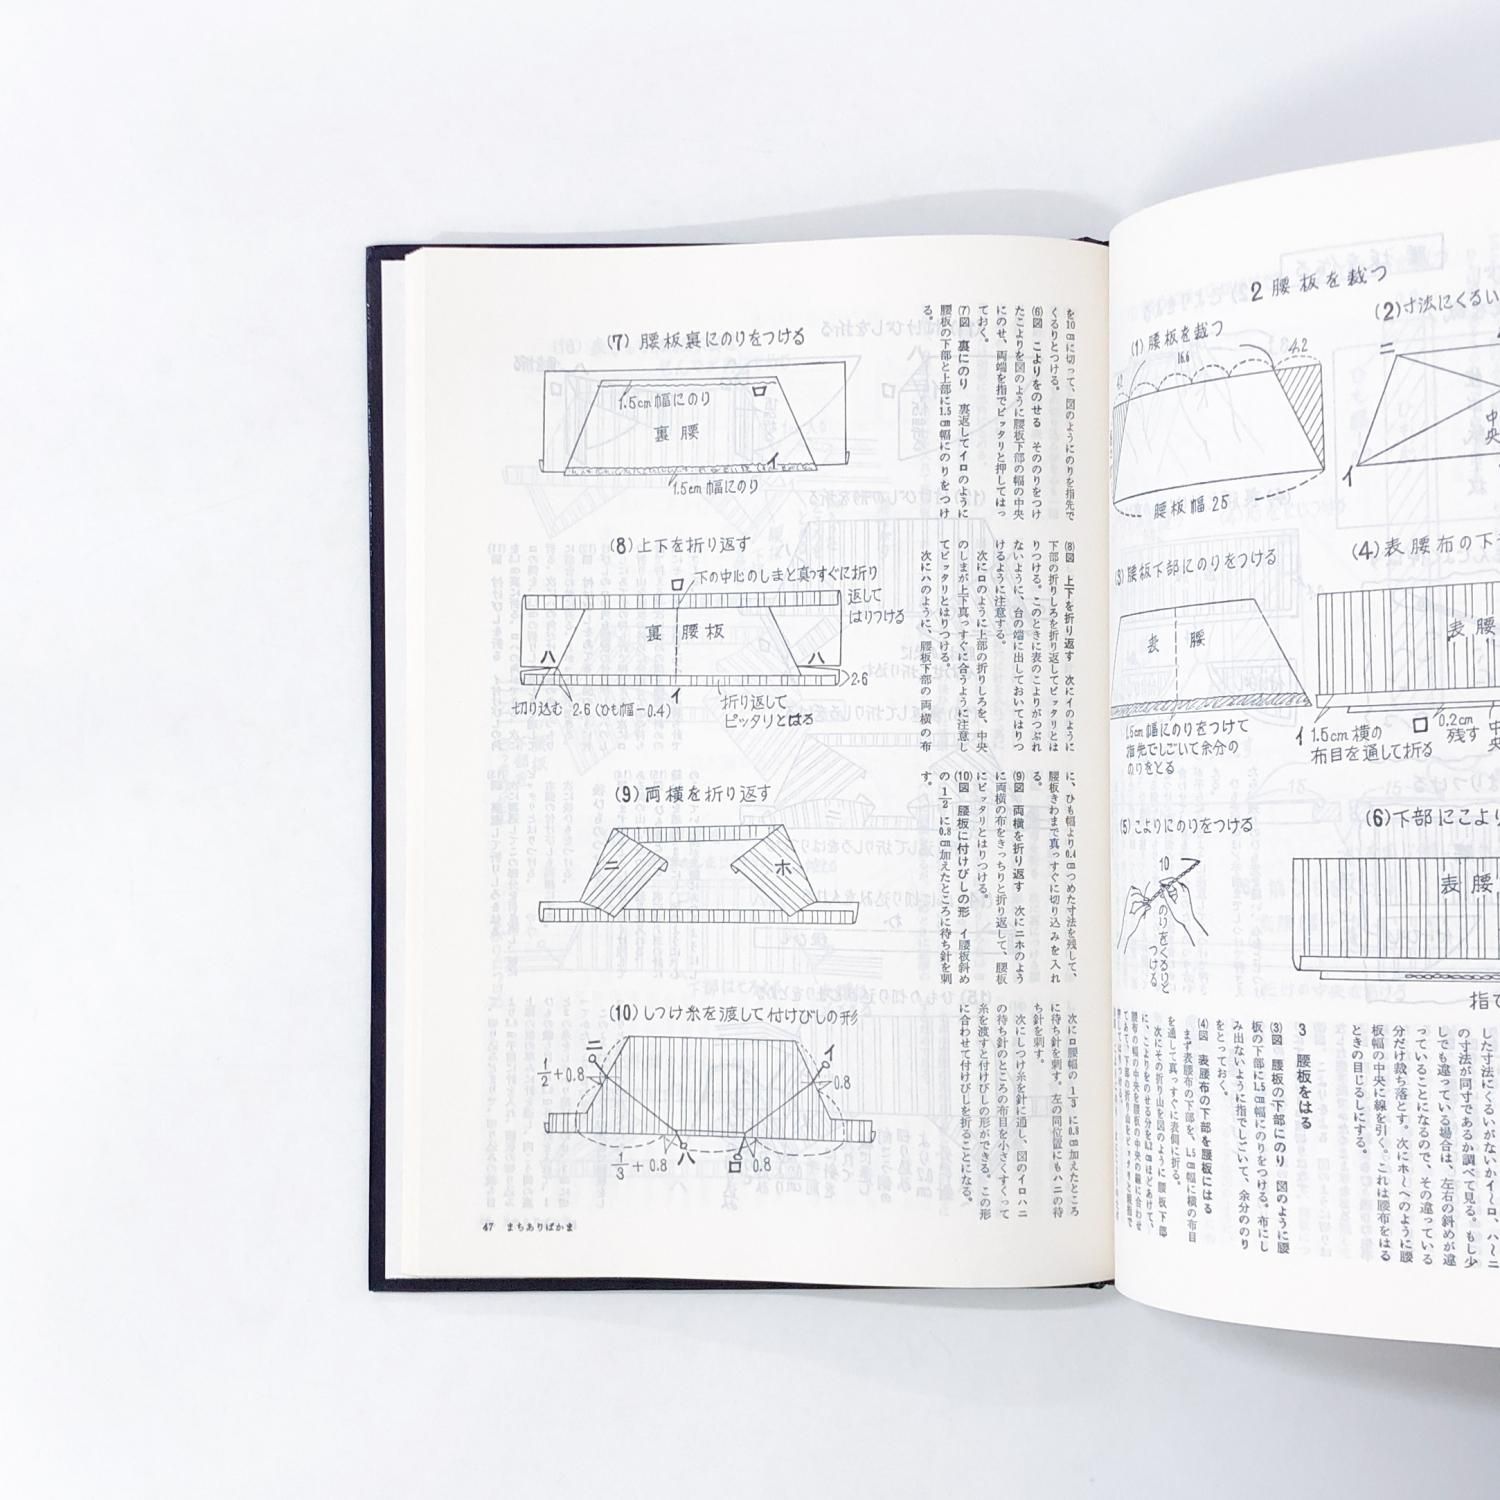 2 腰板を裁つ
(1) 腰板を裁つ
16.6
4.2
4.2
腰板幅 25
(2)寸法にくるい
ニ
イ
中
央
(3) 腰板下部にのりをつける
表 腰
1.5cm幅にのりをつけて
指先でしごいて余分の
のりをとる
(4)表腰布の下
表 腰
イ 1.5cm横の
布目を通して折る
ロ
0.2cm
残す
中
央
(5)こよりにのりをつける
10
のりをくるりと
つける
(6)下部にこより
表 腰
指で
した寸法にくるいがないかイ〜ロ、ハ〜ニ
の寸法が同寸であるか調べて見る。もし少
しでも違っている場合は、左右の斜めが違
っていることになるので、その違っている
分だけ裁ち落とす。次にホ〜ヘのように腰
板幅の中央に線を引く。これは腰布をはる
ときの目じるしにする。
3 腰板をはる
(3)図 腰板の下部にのり 図のように腰
板の下部に1.5cm幅にのりをつける。布にし
み出ないように指でしごいて、余分ののり
をとっておく。
(4)図 表腰布の下部を腰板にはる
まず表腰布の下部を、1.5cm幅に横の布目
を通して真っすぐに表側に折る。
次にその折り山を図のように腰板下部
に、こよりをのせる分を0.2cmほどあけて、
腰布の幅の中央を腰板の中央の線に合わせ
てあて、下部の折り山をピッタリと親指で
を10cmに切って、図のようにのりを指先で
くるりとつける。
(6)図 こよりをのせる そののりをつけ
たこよりを図のように腰板下部の幅の中央
にのせ、両端を指でピッタリと押してはっ
ておく。
(7)図 裏にのり 裏返してイロのように
腰板の下部と上部に1.5cm幅にのりをつけ
る。
(8)図 上下を折り返す 次にイのように
下部の折りしろを折り返してピッタリとは
りつける。このときに表のこよりがつぶれ
ないように、台の端に出しておいてはりつ
けるように注意する。
次にロのように上部の折りしろを、中央
のしまが上下真っすぐに合うように注意し
てピッタリとはりつける。
次にハのように、腰板下部の両横の布
に、ひも幅より0.4cmつめた寸法を残して、
腰板きわまで真っすぐに切り込みを入れ
る。
(9)図 両横を折り返す 次にニホのよう
に両横の布をきっちりと折り返して、腰板
にピッタリとはりつける。
(10)図 腰板に付けびしの形 イ腰板斜め
の1/2に0.8cm加えたところに待ち針を刺
す。
次にロ腰幅の1/3に0.8cm加えたところ
に待ち針を刺す。左の同位置にもハニの待
ち針を刺す。
次にしつけ糸を針に通し、図のイロハニ
の待ち針のところの布目を小さくすくって
糸を渡すと付けびしの形ができる。この形
に合わせて付けびしを折ることになる。
(7) 腰板裏にのりをつける
1.5cm幅にのり
ロ
裏 腰
イ
1.5cm幅にのり
(8)上下を折り返す
ロ 下の中心のしまと真っすぐに折り
返して
はりつける
裏 腰板
ハ
ハ
2.6
切り込む 2.6(ひも幅−0.4)
イ
折り返して
ピッタリとはる
(9)両横を折り返す
ニ
ホ
(10)しつけ糸を渡して付けびしの形
ニ
イ
1/2+0.8
0.8
1/3+0.8
ハ
ロ
0.8
47 まちありばかま